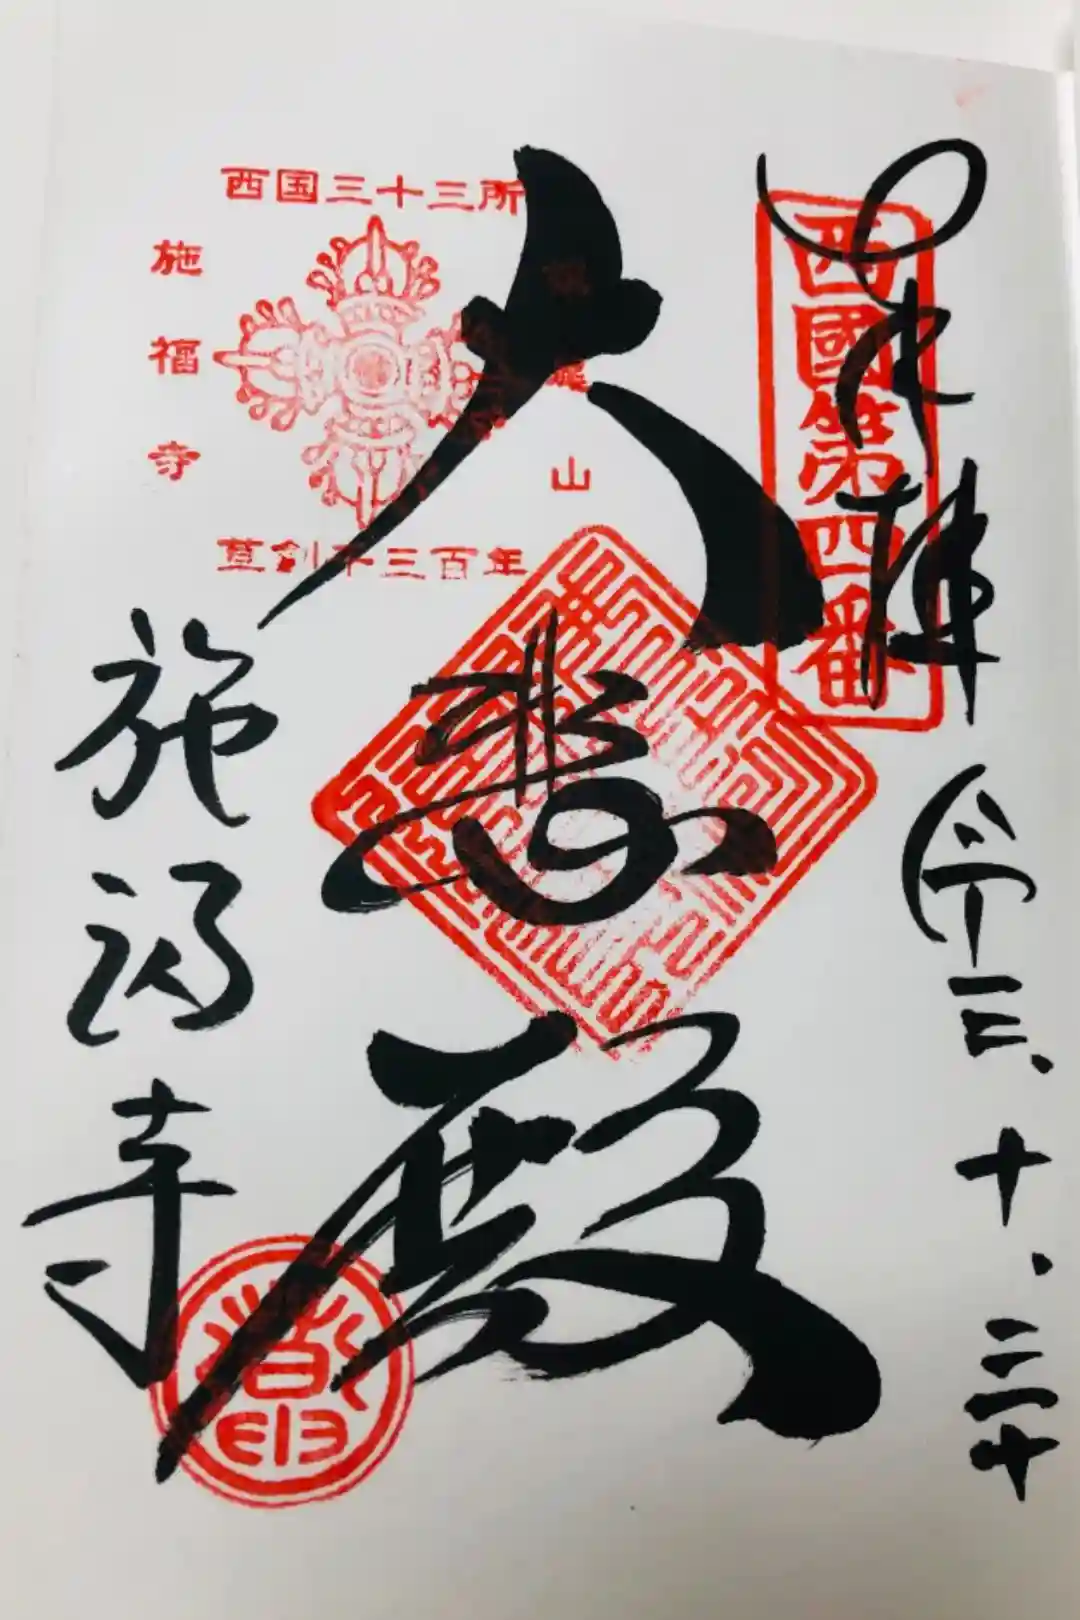 奉拝
西國第四番
大悲殿
西国三十三所
槇尾山
施福寺
草創千三百年
施福寺